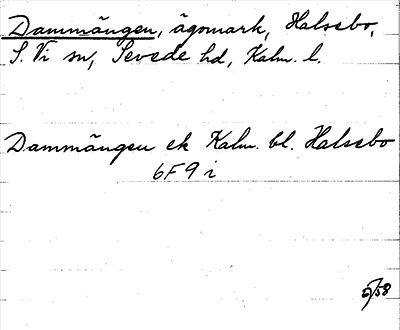 Dammängen, ägomark, Halssbo,
S. Vi sn, Sevede hd, Kalm. l.
Dammängen ek Kalm. bl. Halssbo
6F9i